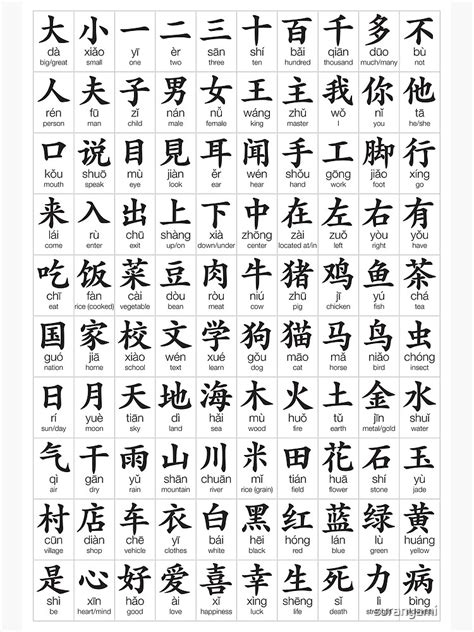 大 小 一 二 三 十 百 千 多 不
dà xiǎo yī èr sān shí bǎi qiān duō bù
big/great small one two three ten hundred thousand much/many not
人 夫 子 男 女 王 主 我 你 他
rén fū zǐ nán nǚ wáng zhǔ wǒ nǐ tā
person man child male female king master I you he/she
口 说 目 見 耳 闻 手 工 脚 行
kǒu shuō mù jiàn ěr wén shǒu gōng jiǎo xíng
mouth speak eye look ear hear hand work foot go
来 入 出 上 下 中 在 左 右 有
lái rù chū shàng xià zhōng zài zuǒ yòu yǒu
come enter exit up/on down/under center located at/in left right have
吃 饭 菜 豆 肉 牛 猪 鸡 鱼 茶
chī fàn cài dòu ròu niú zhū jī yú chá
eat rice (cooked) vegetable bean meat cow pig chicken fish tea
国 家 校 文 学 狗 猫 马 鸟 虫
guó jiā xiào wén xué gǒu māo mǎ niǎo chóng
nation home school text learn dog cat horse bird insect
日 月 天 地 海 木 火 土 金 水
rì yuè tiān dì hǎi mù huǒ tǔ jīn shuǐ
sun/day moon sky land sea wood fire earth metal/gold water
气 干 雨 山 川 米 田 花 石 玉
qì gān yǔ shān chuān mǐ tián huā shí yù
air dry rain mountain river rice (grain) field flower stone jade
村 店 车 衣 白 黑 红 蓝 绿 黄
cūn diàn chē yī bái hēi hóng lán lǜ huáng
village shop vehicle clothes white black red blue green yellow
是 心 好 爱 喜 幸 生 死 力 病
shì xīn hǎo ài xǐ xìng shēng sǐ lì bìng
be heart/mind good love happiness luck life death illness
surangami